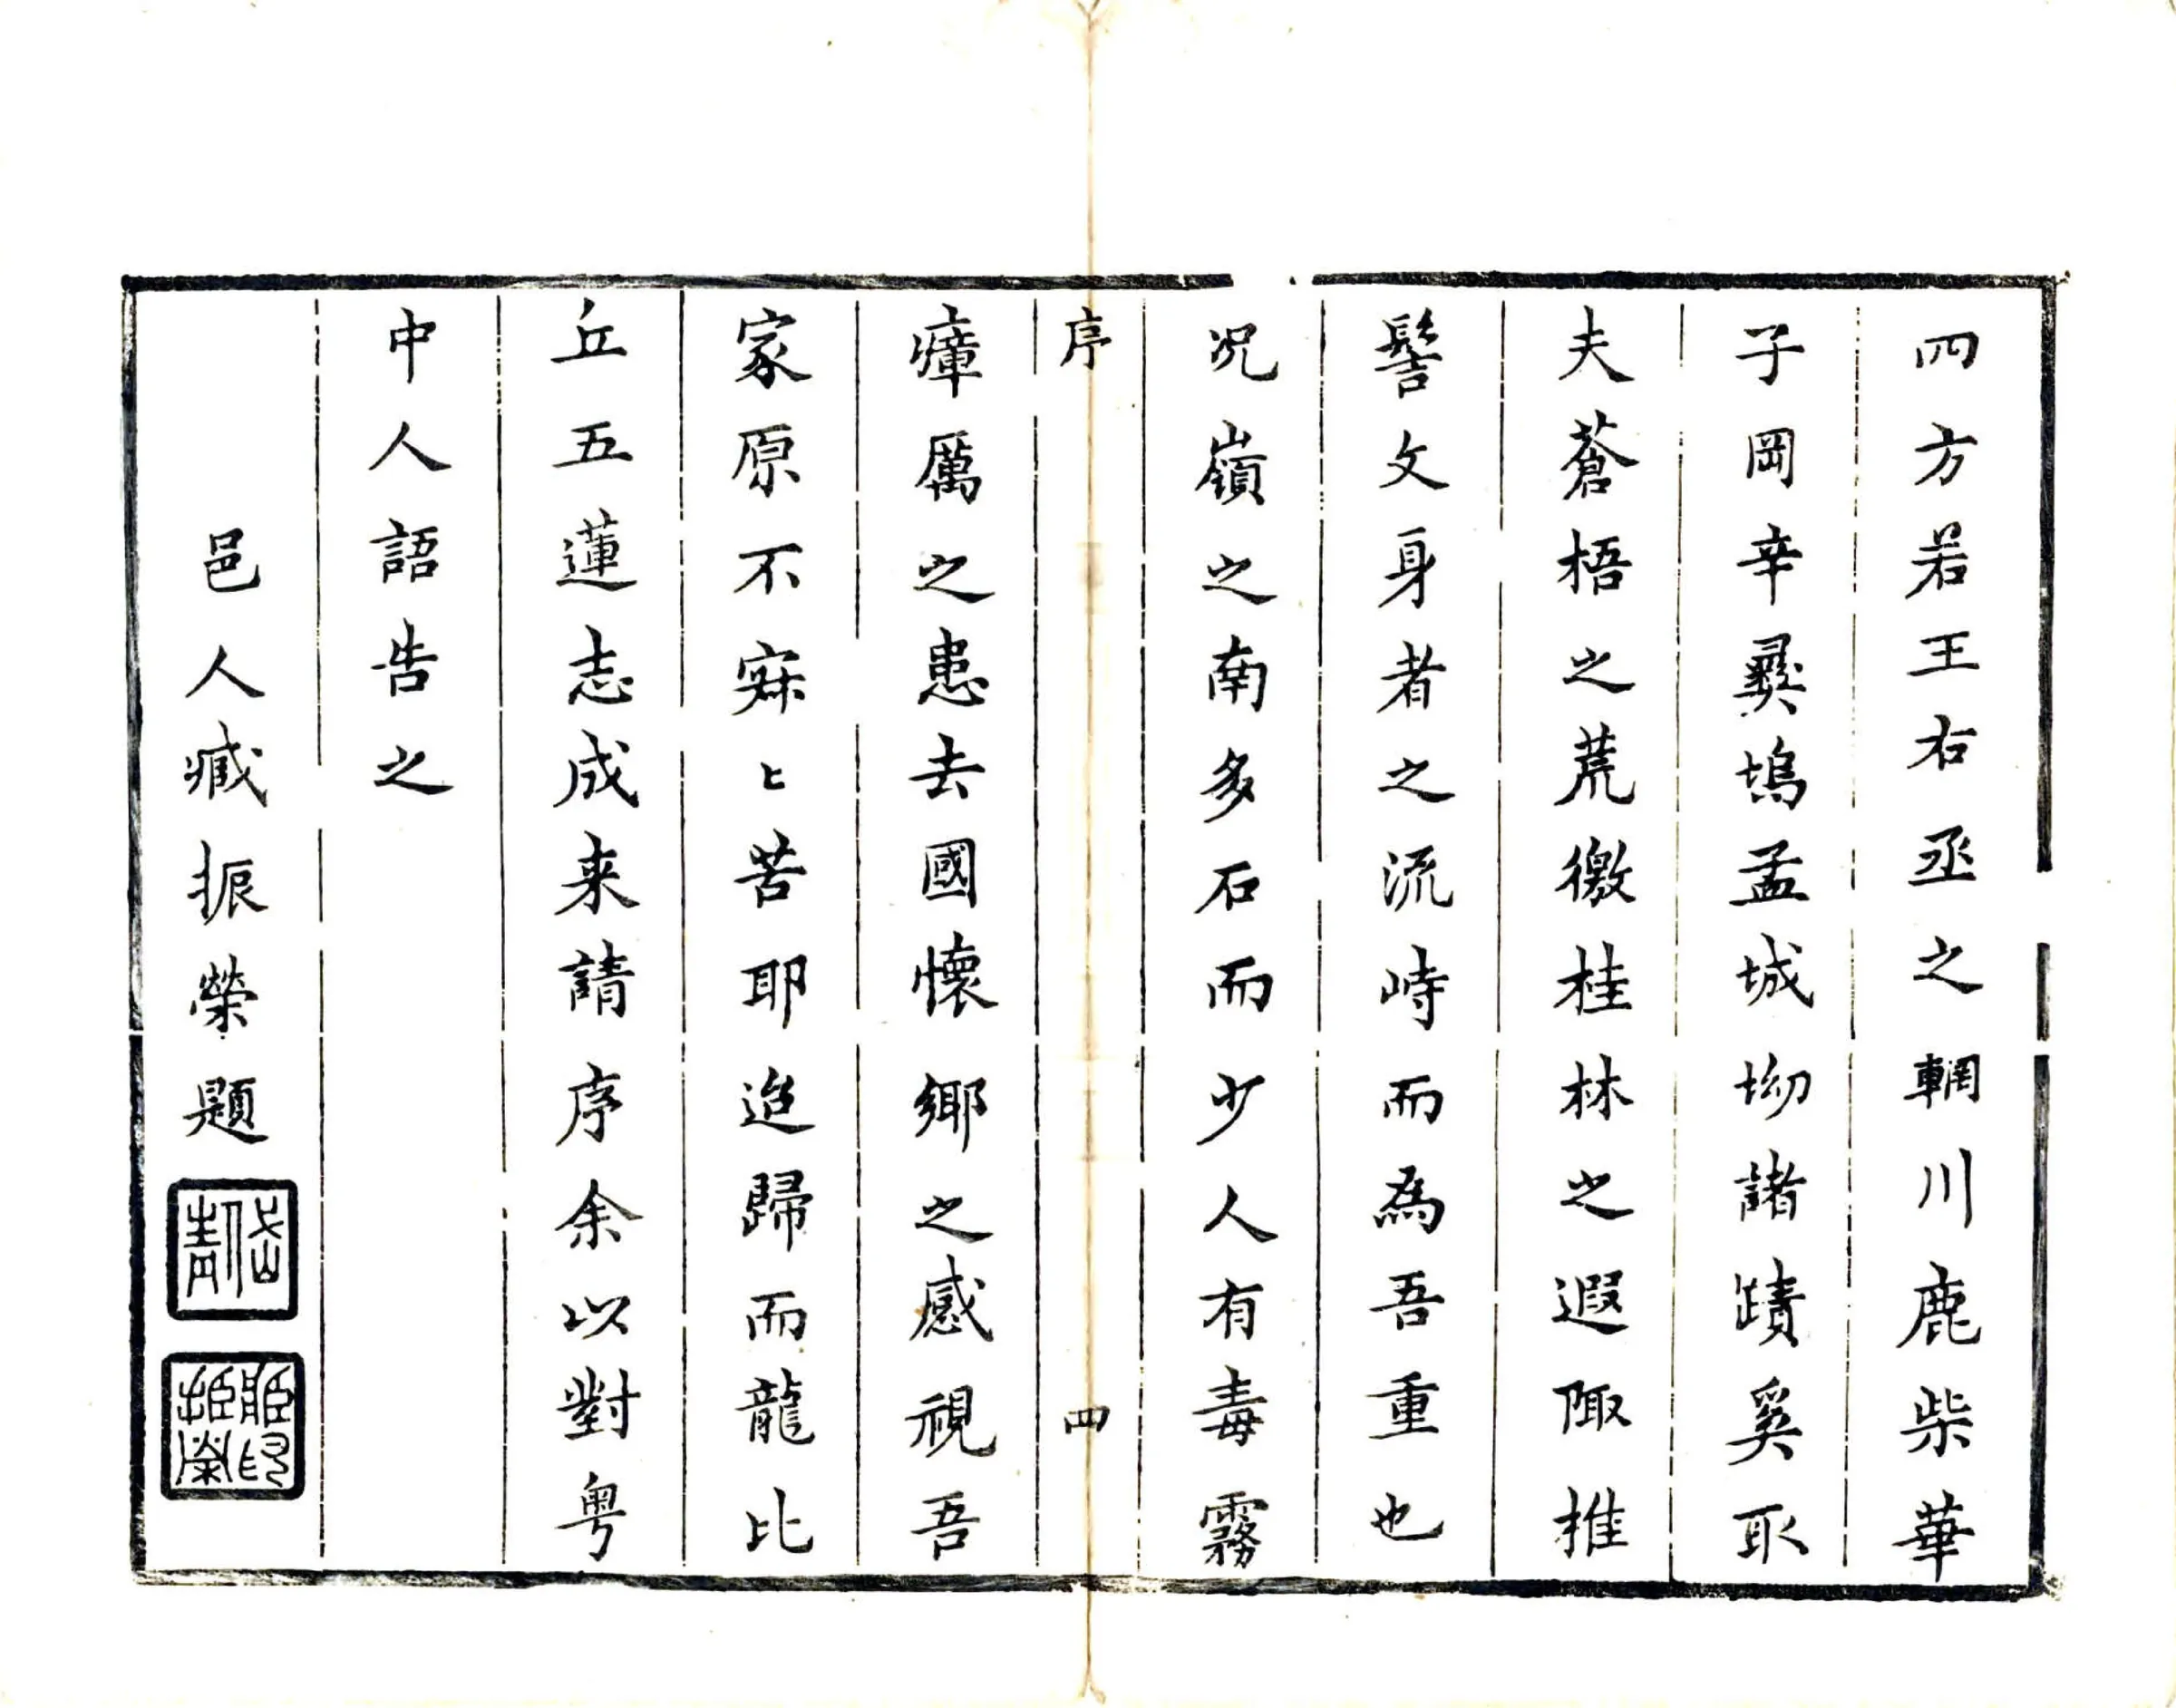 四方若王右丞之輞川鹿柴華
子岡辛彛塢孟城坳諸蹟奚取
夫蒼梧之荒徼桂林之遐陬推
髻文身者之流峙而為吾重也
况嶺之南多石而少人有毒霧
序 四
瘴厲之患去國懷鄉之感視吾
家原不寐〻苦耶迨歸而龍比
丘五蓮志成来請序余以對粤
中人語告之
邑人臧振榮題
岱青
臧印振榮